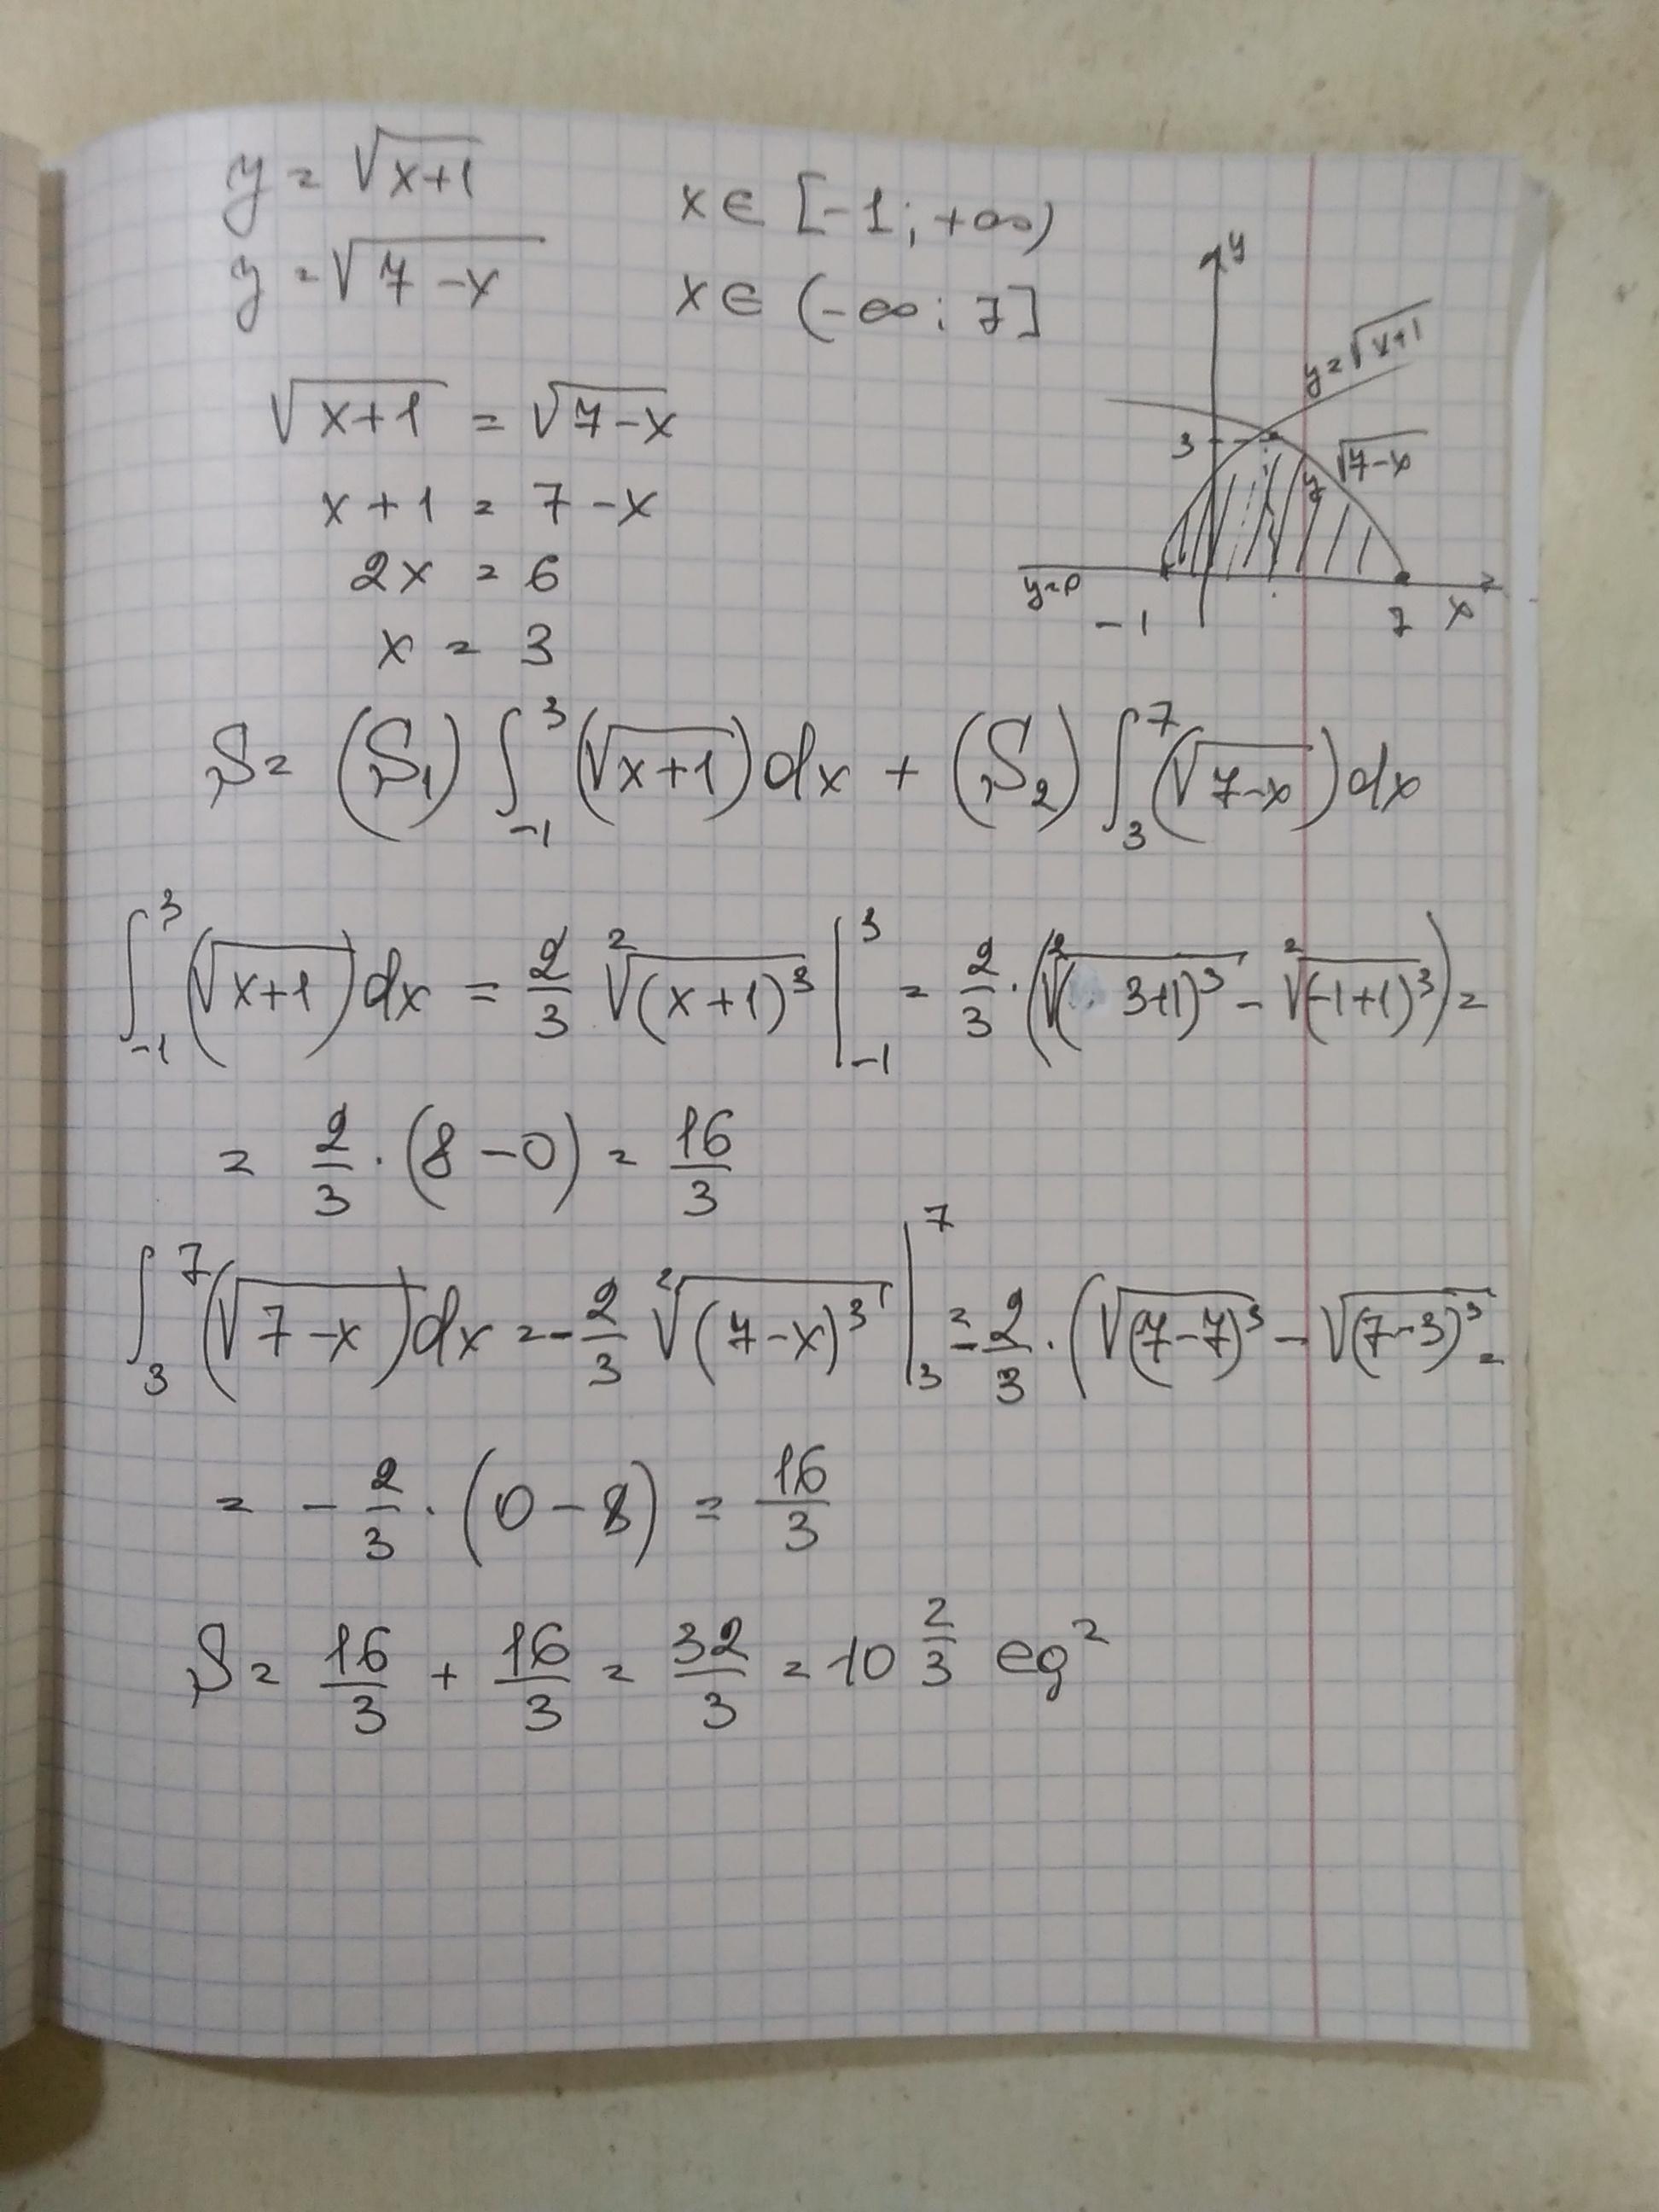 y = √(x+1)   x ∈ [-1; +∞)
y = √(7-x)   x ∈ (-∞; 7]
√(x+1) = √(7-x)
x + 1 = 7 - x
2x = 6
x = 3
y
y = √(x+1)
3
y √(7-x)
y=0
-1
7
x
S = (S₁) ∫₋₁³ (√(x+1)) dx + (S₂) ∫₃⁷ (√(7-x)) dx
∫₋₁³ (√(x+1)) dx = 2/3 ²√((x+1)³) |₋₁³ = 2/3 · (²√((3+1)³) - ²√((-1+1)³)) =
= 2/3 · (8 - 0) = 16/3
∫₃⁷ (√(7-x)) dx = -2/3 ²√((7-x)³) |₃⁷ = -2/3 · (√((7-7)³) - √((7-3)³) =
= - 2/3 · (0 - 8) = 16/3
S = 16/3 + 16/3 = 32/3 = 10 2/3 eg²